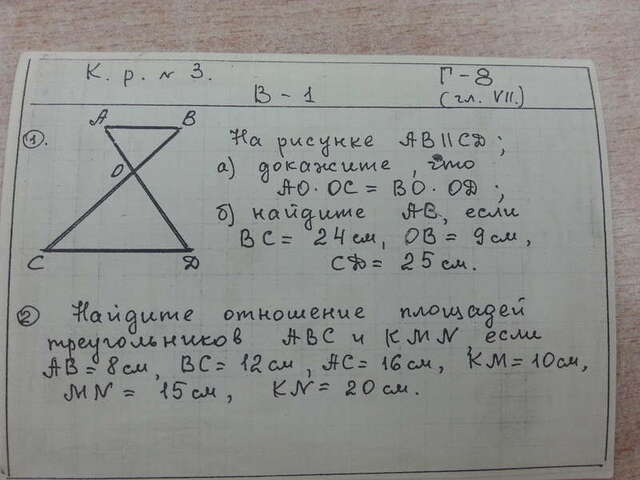 К. р. № 3.
Г-8
В - 1
(гл. VII.)
А В
О
С D
1.
На рисунке AB||CD;
а) докажите, что
AO·OC = BO·OD;
б) найдите AB, если
BC = 24 см, OB = 9 см,
CD = 25 см.
2 Найдите отношение площадей
треугольников ABC и KMN, если
AB = 8 см, BC = 12 см, AC = 16 см, KM = 10 см,
MN = 15 см, KN = 20 см.